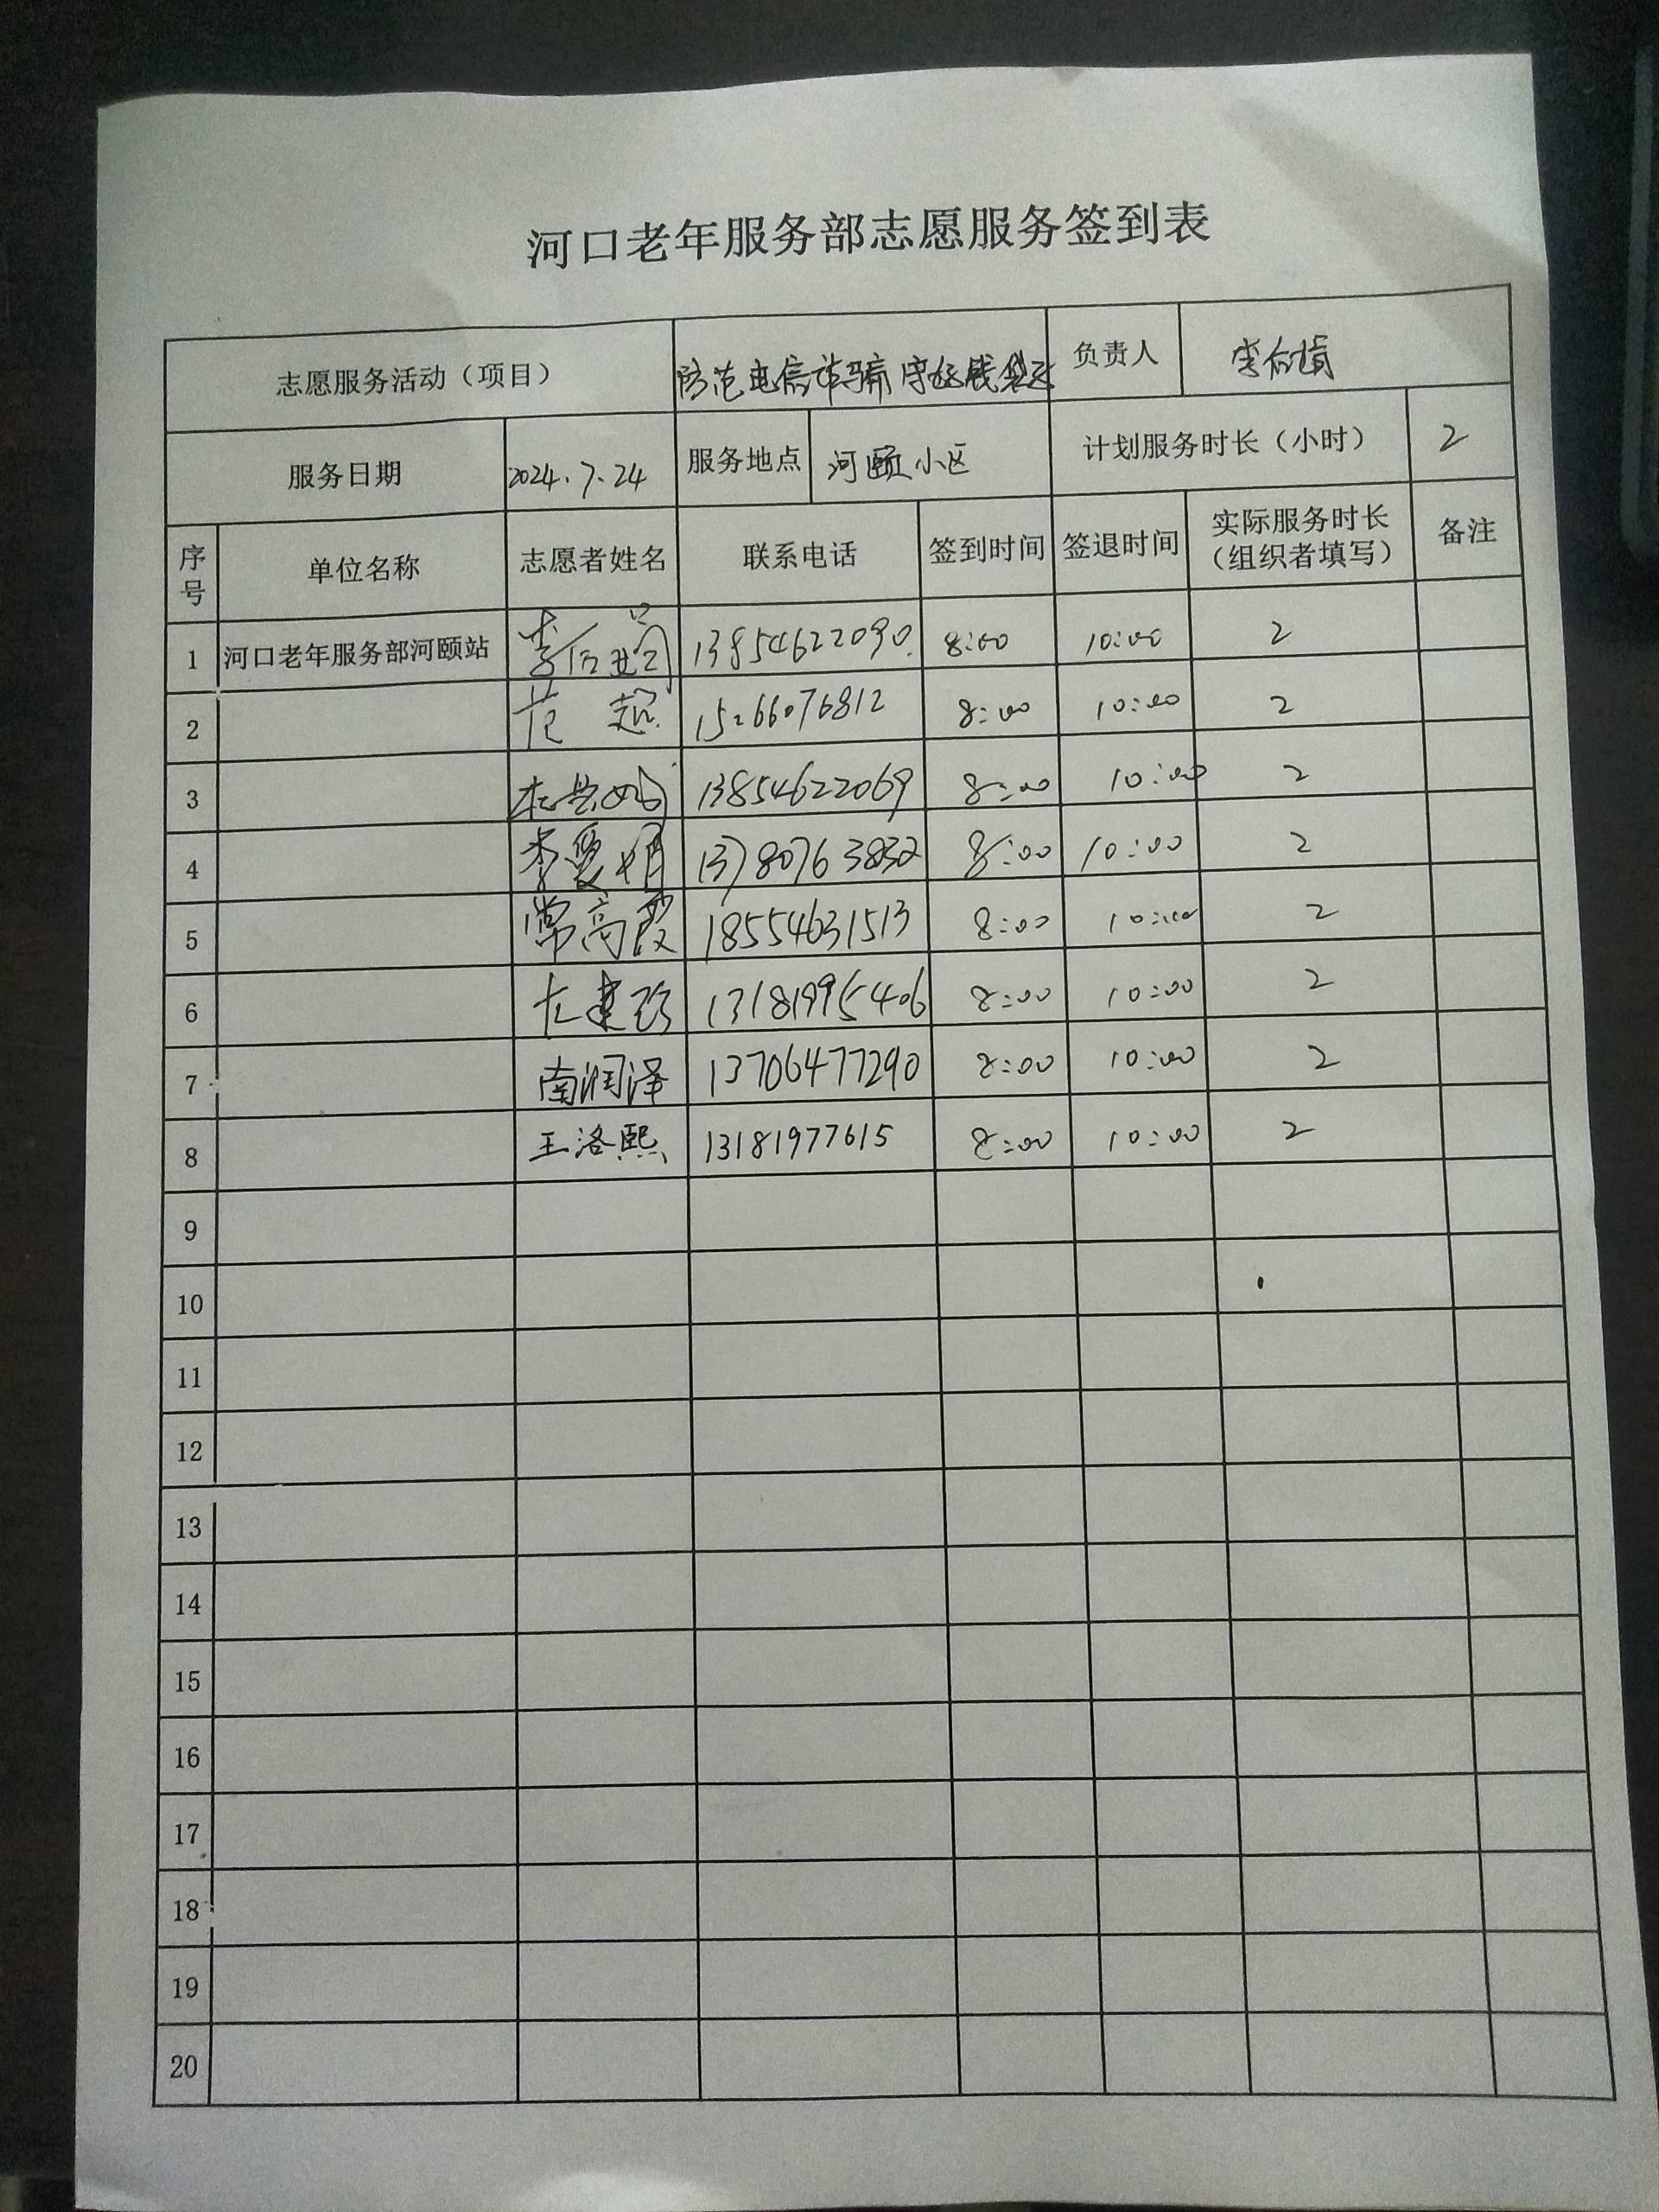 河口老年服务部志愿服务签到表
志愿服务活动（项目） 防范电信诈骗 守好钱袋子 负责人
服务日期 2024.7.24 服务地点 河颐小区 计划服务时长（小时） 2
序号 单位名称 志愿者姓名 联系电话 签到时间 签退时间 实际服务时长（组织者填写） 备注
1 河口老年服务部河颐站 13854622090 8:00 10:00 2
2 范超 15266076812 8:00 10:00 2
3 13854622069 8:00 10:00 2
4 李爱娟 13780763832 8:00 10:00 2
5 常高霞 18554631513 8:00 10:00 2
6 13181995406 8:00 10:00 2
7 南润泽 13706477290 8:00 10:00 2
8 王洛熙 13181977615 8:00 10:00 2
9
10
11
12
13
14
15
16
17
18
19
20